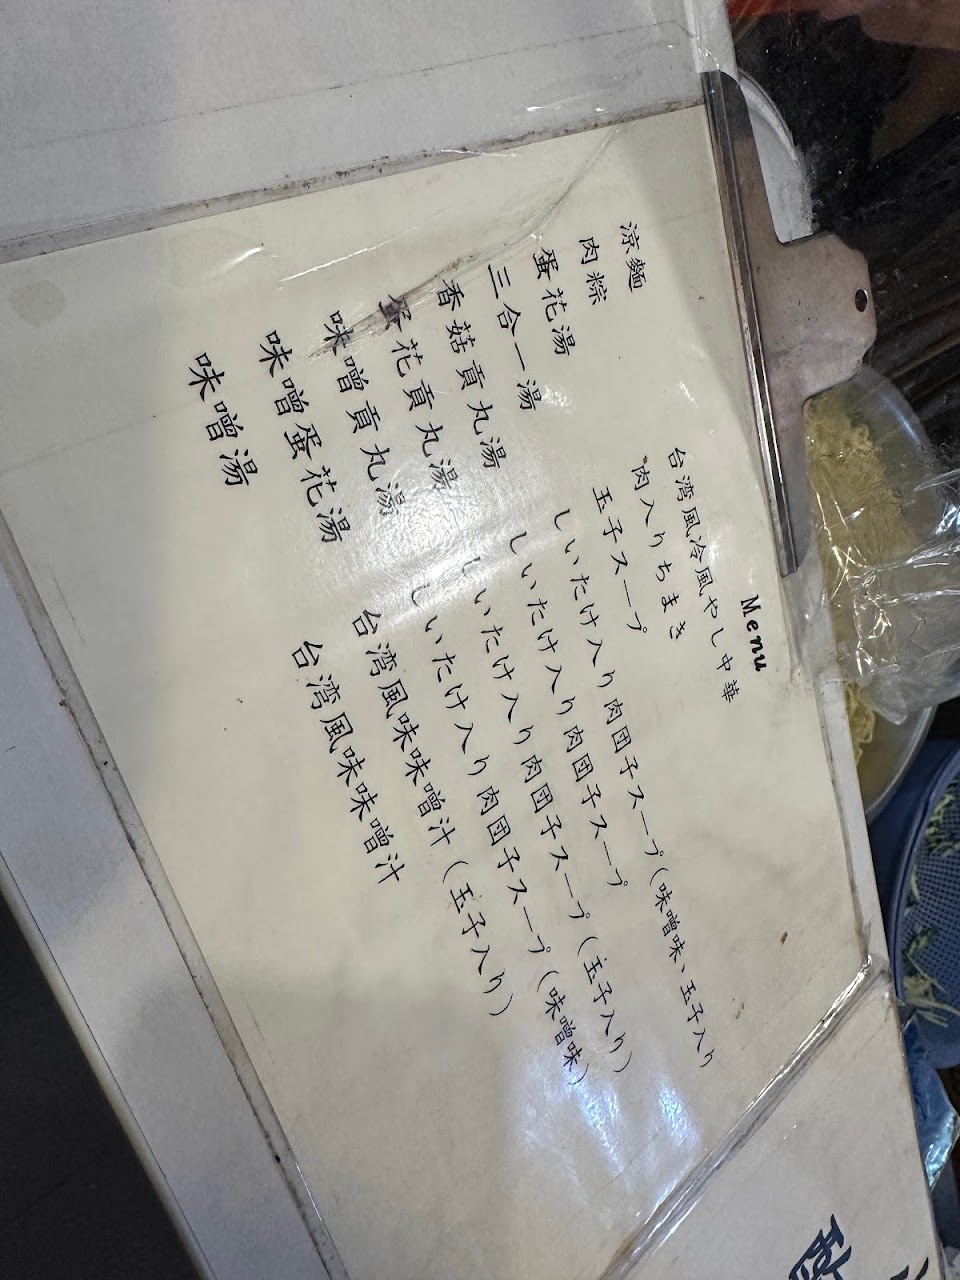 Menu
涼麵 台湾風冷風やし中華
肉粽 肉入りちまき
蛋花湯 玉子スープ
三合一湯 しいたけ入り肉団子スープ(味噌味、玉子入り
香菇貢丸湯 しいたけ入り肉団子スープ
蛋花貢丸湯 しいたけ入り肉団子スープ(玉子入り)
味噌貢丸湯 しいたけ入り肉団子スープ(味噌味)
味噌蛋花湯 台湾風味味噌汁(玉子入り)
味噌湯 台湾風味味噌汁